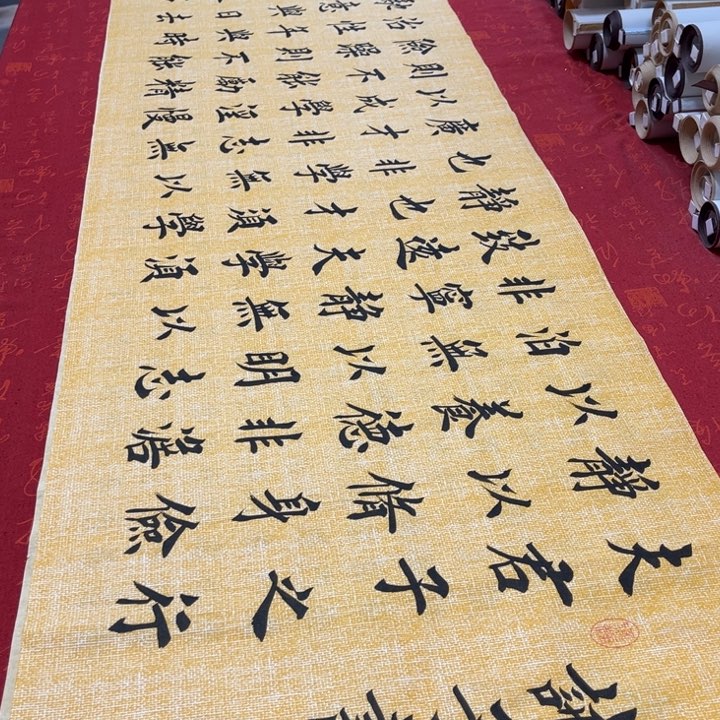 誡子書
夫君子之行
靜以脩身儉
以養德非澹
泊無以明志
非寧靜無以
致遠夫學須
靜也才須學
也非學無以
廣才非志無
以成學淫慢
則不能勵精
險躁則不能
冶性年與時
意與日去